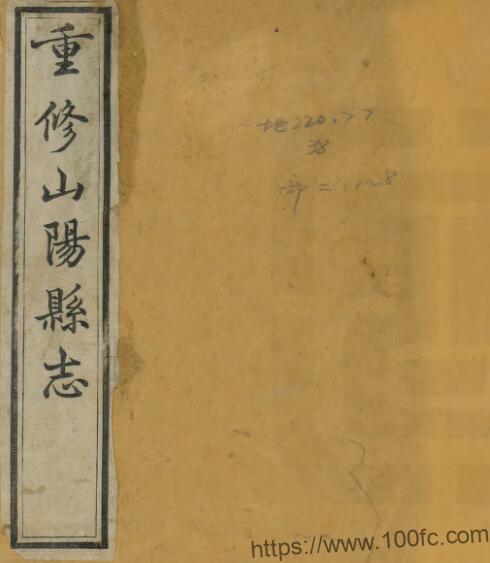 重修山陽縣志
地220.77
38
https://www.100fc.com